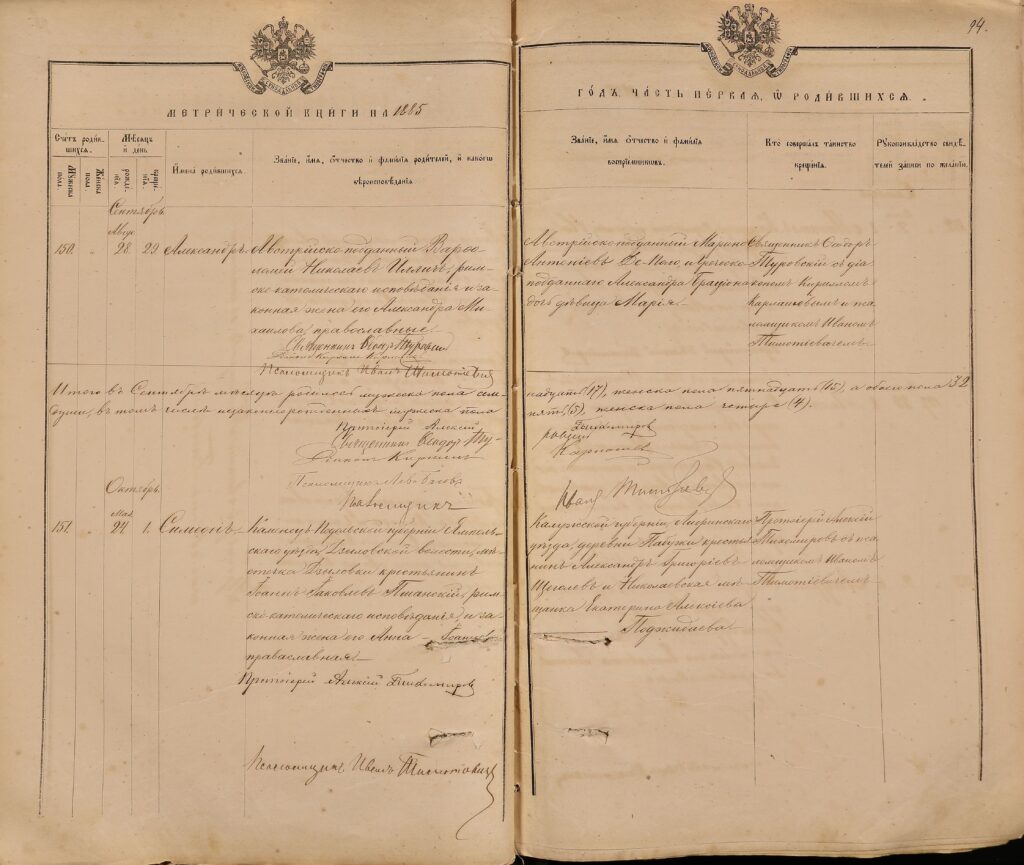 94.
МЕТРИЧЕСКОЙ КНИГИ НА 1885
ГОДЪ, ЧАСТЬ ПЕРВАЯ, Ѡ РОДИВШИХСЯ.
Счетъ родившихся.
Мужеска пола.
Женска пола.
Мѣсяцъ и день
рожденія.
крещенія.
Имена родившихся.
Званіе, имя, отчество и фамилія родителей, и какого вѣроисповѣданія
Званіе, имя, отчество и фамилія воспріемниковъ.
Кто совершалъ таинство крещенія.
Рукоприкладство свидѣтелей записи по желанію.
Сентябрь.
Авгус.
150. 28. 29. Александръ.
Австрійско-подданный Варѳо-
ломей Николаевъ Илличъ, рим-
ско-католическаго исповѣданія и за-
конная жена его Александра Ми-
хаилова, православные.
Священникъ Ѳеодоръ Туровскій
Діаконъ Кириллъ
Псаломщикъ Иванъ Тимотіевичъ
Австрійско-подданный Марино
Антоніевъ Де-Поло, и греческо-
подданнаго Александра
дочь дѣвица Марія.
Священникъ Ѳеодоръ
Туровскій съ діа-
кономъ Кирилломъ
Карпашовымъ и пса-
ломщикомъ Иваномъ
Тимотіевичемъ.
Итого въ Сентябрѣ мѣсяцѣ родилось мужеска пола сем-
надцать (17), женска пола пятнадцать (15), а обоего пола 32
души, въ томъ числѣ незаконнорожденныхъ мужеска пола
пять (5), женска пола четыре (4).
Протоіерей Алексій Тихомировъ
Священникъ Ѳеодоръ Туровскій
Діаконъ Кириллъ
Псаломщикъ
Псаломщикъ Иванъ Тимотіевичъ
Октябрь.
151. 24. 1. Симеонъ.
Каменецъ-Подольской губерніи Ямполь-
скаго уѣзда, Дзыговской волости, мѣс-
течка Дзыговки крестьянинъ
Іоаннъ Яковлевъ рим-
ско-католическаго исповѣданія, и за-
конная жена его Анна
православная.
Протоіерей Алексій Тихомировъ
Псаломщикъ Иванъ Тимотіевичъ
Калужской губерніи,
уѣзда, деревни крестья-
нинъ Александръ Григоріевъ
Щеголевъ и Николаевская мѣ-
щанка Екатерина Алексіева
Поджидаева.
Протоіерей Алексій
Тихомировъ съ пса-
ломщикомъ Иваномъ
Тимотіевичемъ